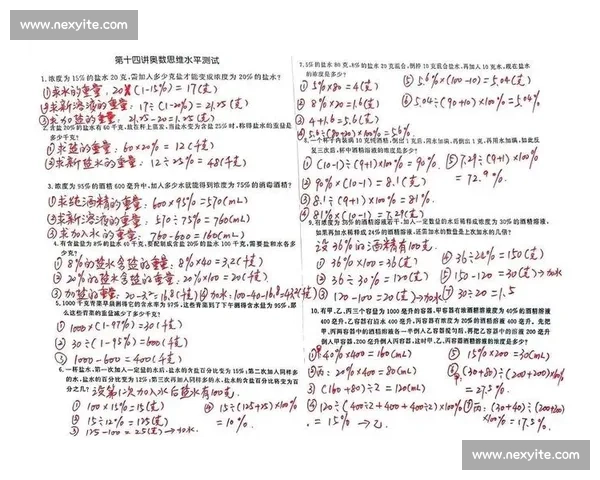 www.nexyite.com
第十四讲奥数思维水平测试
1.浓度为 15%的盐水 20 克,需加入多少克盐才能变成浓度为 20%的盐水?
①求水的重量: 20×(1-15%) = 17(克)
②求新溶液的重量: 17÷(1-20%) = 21.25(克)
③求加盐的重量: 21.25-20=1.25(克)
2.含盐 20%的盐水有 60 千克,放在秤上蒸发,当盐水变为含盐 25%时,称得盐水的重量是
多少千克?
①求盐的重量: 60×20% = 12(千克)
②求新盐水的重量: 12÷25% = 48(千克)
3.浓度为 95%的酒精 600 毫升中,加入多少水就能得到浓度为 75%的消毒酒精?
①求纯酒精的重量: 600×95%=570(mL)
②求新溶液的重量: 570÷75%=760(mL)
③求加入水的重量: 760-600=160(mL)
4.有含盐量为 8%的盐水 40 千克,要配制成含盐 20%的盐水 100 千克,需要盐和水各多
少千克?
①8%的盐水含盐的重量: 8%×40=3.2(千克)
②20%的盐水含盐的重量: 20%×100=20(千克)
③加盐的重量: 20-3.2=16.8(千克)④加水:100-40-16.8=43.2(千克)
5.1000 千克青菜早晨测得它的含水率为 97%,这些青菜到了下午测得含水量为 95%,那
么这些青菜的重量减少了多少千克?
① 1000×(1-97%)=30(千克)
② 30÷(1-95%)=600(千克)
③ 1000-600=400(千克)
6.一杯盐水,第一次加入一定量的水后,盐水的含盐百分比变为 15%;第二次加入同样多
的水,盐水的含盐百分比变为 12%;第三次再加入同样多的水,盐水的含盐百分比将变为百
分之几?
设第1次加入水后盐水有100克.
① 100×15%=15(克)
② 15÷12%=125(克)
③ 125-100=25(克)→加水
④ 15÷(125+25)×100%
=10%.
7.5%的盐水 80 克,8%的盐水 20 克混合,倒掉 10 克混合盐水,再加入 10 克水,现在盐水
的浓度是多少?
① 5%×80=4(克)
② 8%×20=1.6(克)
③ 4+1.6=5.6(克)
④ 5.6÷(80+20)×100%=5.6%
⑤ 5.6%×(100-10)=5.04(克)
⑥ 5.04÷(90+10)×100%=5.04%
8.一个杯子内装满 10 克纯酒精,倒出 1 克后,用水加满,再倒出 1 克后,再用水加满,如此反
复三次后,杯中酒精溶液的浓度是多少?
① (10-1)÷(9+1)×100%=90%
② 90%×(10-1)=8.1(克)
③ 8.1÷(9+1)×100%=81%
④ 81%×(10-1)=7.29(克)
⑤ 7.29÷(9+1)×100%
=72.9%
9.有浓度为 36%的酒精溶液若干,加入一定数量的水后稀释成浓度为 30%的酒精溶液,
如果再加水稀释成 24%的酒精溶液,还需加水的数量是上次加水的几倍?
设36%的酒精有100克.
① 36%×100=36(克)
② 36÷30%=120(克)
③ 120-100=20(克)→加水
④ 36÷24%=150(克)
⑤ 150-120=30(克)→加水
⑦ 30÷20=1.5
10.有甲、乙、丙三个容量为 1000 毫升的容器,甲容器有浓度为 40%的酒精溶液 400 毫
升,乙容器有清水 400 毫升,丙容器有浓度为 20%的酒精溶液 400 毫升,先把
甲、丙两容器中的酒精溶液各一半倒入乙容器搅匀后,再把乙容器中的溶液 200 毫升
倒入甲容器,200 毫升倒入丙容器,这时甲、乙、丙容器酒精溶液的浓度是多少?
①甲:40%×400=160(mL)
②丙:20%×400=80(mL)
③ (160+80)÷2=120(mL)
④ 120÷(400÷2+400+400÷2)×100%
=15% →乙.
⑤ 15%×200=30(mL)
⑥甲:(30+80)÷(200+200)×100%
=27.5%
⑦丙:(30+40)÷(200+200)
×100%=17.5%
www.nexyite.com